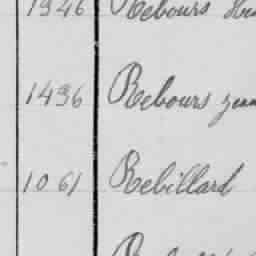 1946 Rebours
1496 Rebours
1061 Rebillard